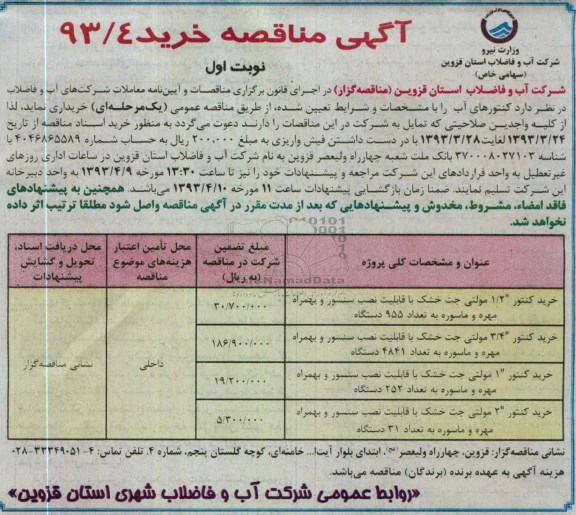 آگهی مناقصه خرید ۹۳/۴
نوبت اول
وزارت نیرو
شرکت آب و فاضلاب استان قزوین
(سهامی خاص)
شرکت آب و فاضلاب استان قزوین (مناقصه‌گزار) در اجرای قانون برگزاری مناقصات و آیین‌نامه معاملات شرکت‌های آب و فاضلاب
در نظر دارد کنتورهای آب را با مشخصات و شرایط تعیین شده، از طریق مناقصه عمومی (یک‌مرحله‌ای) خریداری نماید، لذا
از کلیه واجدین صلاحیتی که تمایل به شرکت در این مناقصات را دارند دعوت می‌گردد به منظور خرید اسناد مناقصه از تاریخ
۱۳۹۳/۳/۲۴ لغایت ۱۳۹۳/۳/۲۸ با در دست داشتن فیش واریزی به مبلغ ۲۰۰،۰۰۰ ریال به حساب شماره ۴۰۴۶۸۶۵۵۸۹ با
شناسه ۳۷۰۰۰۸۰۲۷۱۰۳ بانک ملت شعبه چهارراه ولیعصر قزوین به نام شرکت آب و فاضلاب استان قزوین در ساعات اداری روزهای
غیرتعطیل به واحد قراردادهای این شرکت مراجعه و پیشنهادات خود را نیز تا ساعت ۱۳:۳۰ مورخه ۱۳۹۳/۴/۹ به واحد دبیرخانه
این شرکت تسلیم نمایند. ضمنا زمان بازگشایی پیشنهادات ساعت ۱۱ مورخه ۱۳۹۳/۴/۱۰ می‌باشند. همچنین به پیشنهادهای
فاقد امضاء، مشروط، مخدوش و پیشنهادهایی که بعد از مدت مقرر در آگهی مناقصه واصل شود مطلقا ترتیب اثر داده
نخواهد شد.
عنوان و مشخصات کلی پروژه
مبلغ تضمین شرکت در مناقصه (به ریال)
محل تأمین اعتبار هزینه‌های موضوع مناقصه
محل دریافت اسناد، تحویل و گشایش پیشنهادات
خرید کنتور "۱/۲ مولتی جت خشک با قابلیت نصب سنسور و بهمراه
مهره و ماسوره به تعداد ۹۵۵ دستگاه
۳۰/۷۰۰/۰۰۰
خرید کنتور "۳/۴ مولتی جت خشک با قابلیت نصب سنسور و بهمراه
مهره و ماسوره به تعداد ۴۸۴۱ دستگاه
۱۸۶/۹۰۰/۰۰۰
داخلی
نشانی مناقصه‌گزار
خرید کنتور "۱ مولتی جت خشک با قابلیت نصب سنسور و بهمراه
مهره و ماسوره به تعداد ۲۵۲ دستگاه
۱۹/۲۰۰/۰۰۰
خرید کنتور "۲ مولتی جت خشک با قابلیت نصب سنسور و بهمراه
مهره و ماسوره به تعداد ۳۱ دستگاه
۵/۳۰۰/۰۰۰
نشانی مناقصه‌گزار: قزوین، چهارراه ولیعصر، ابتدای بلوار آیت‌ا... خامنه‌ای، کوچه گلستان پنجم، شماره ۴. تلفن تماس: ۴-۳۳۳۴۹۰۵۱-۰۲۸
هزینه آگهی به عهده برنده (برندگان) مناقصه می‌باشد.
«روابط عمومی شرکت آب و فاضلاب شهری استان قزوین»